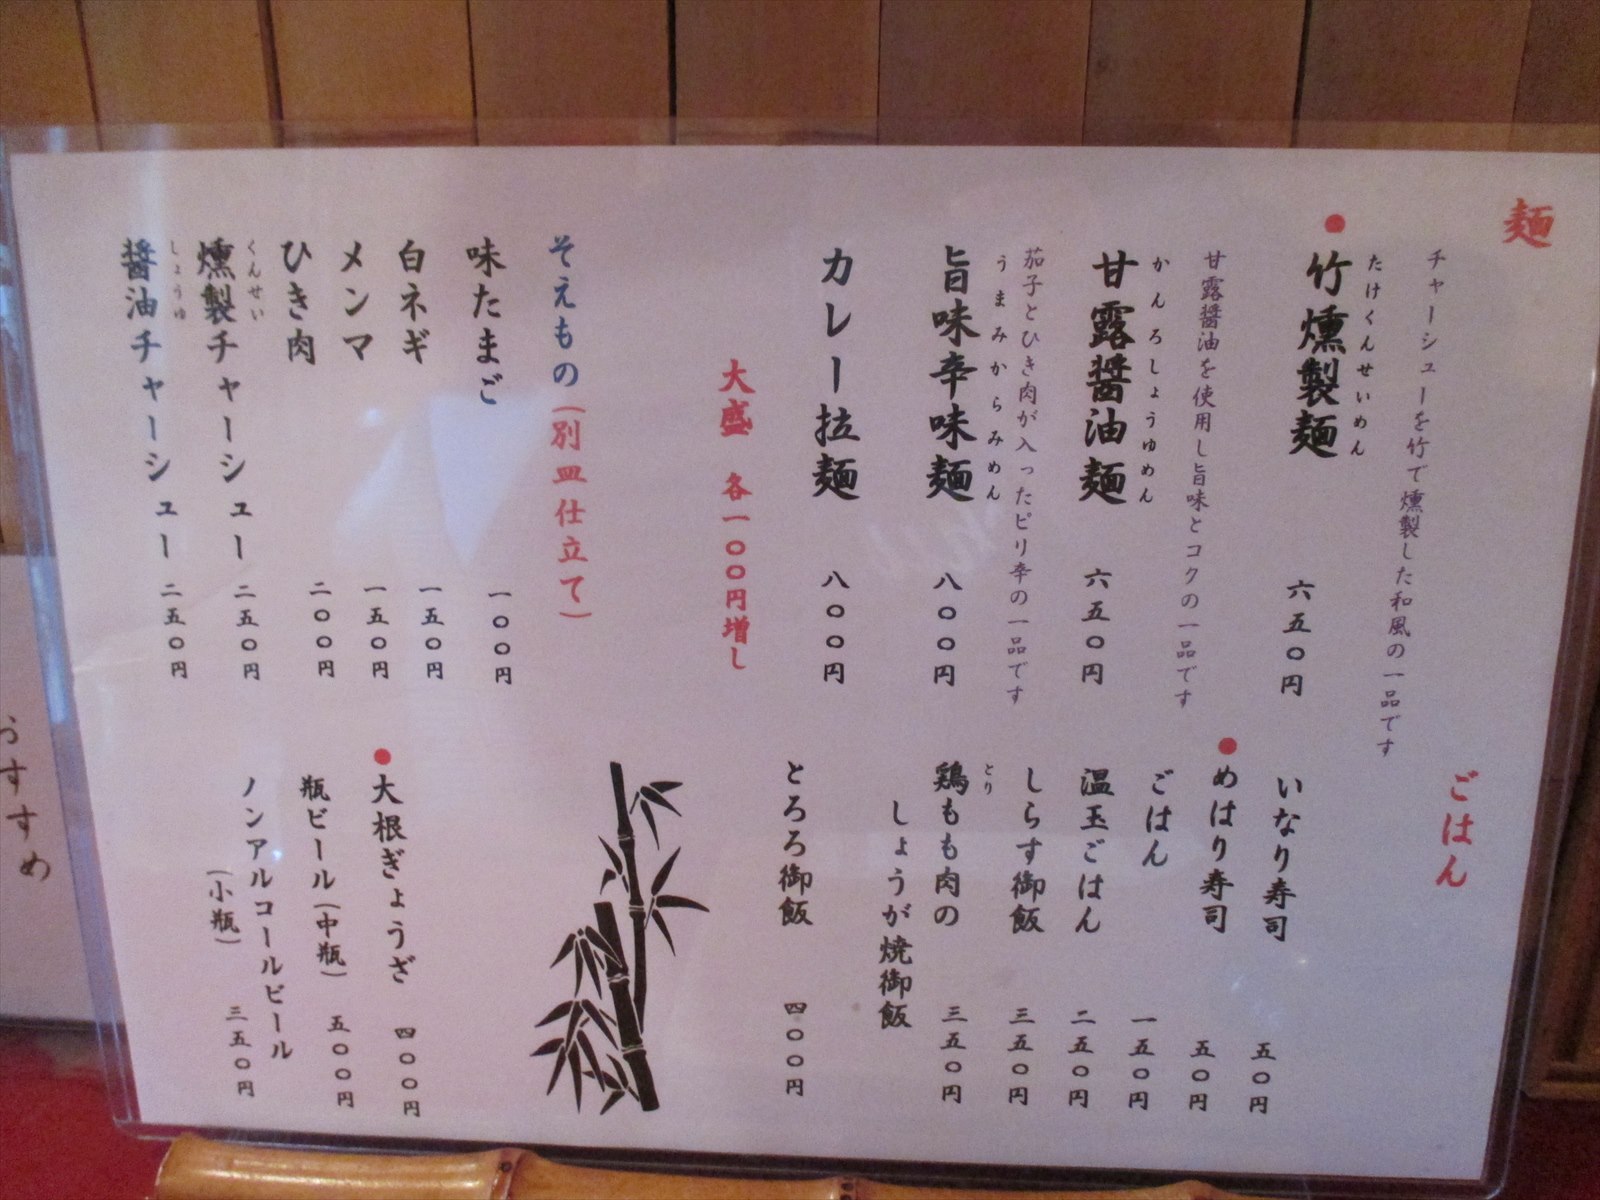 麺
チャーシューを竹で燻製した和風の一品です
たけくんせいめん
●竹燻製麺 六五〇円
甘露醤油を使用し旨味とコクの一品です
かんろしょうゆめん
甘露醤油麺 六五〇円
茄子とひき肉が入ったピリ辛の一品です
うまみからみめん
旨味辛味麺 八〇〇円
カレー拉麺 八〇〇円
大盛 各一〇〇円増し
そえもの(別皿仕立て)
味たまご 一〇〇円
白ネギ 一五〇円
メンマ 一五〇円
ひき肉 二〇〇円
くんせい
燻製チャーシュー 二五〇円
しょうゆ
醤油チャーシュー 二五〇円
ごはん
いなり寿司 五〇円
●めはり寿司 五〇円
ごはん 一五〇円
温玉ごはん 二五〇円
しらす御飯 三五〇円
とり
鶏もも肉の
しょうが焼御飯 三五〇円
とろろ御飯 四〇〇円
●大根ぎょうざ 四〇〇円
瓶ビール(中瓶) 五〇〇円
ノンアルコールビール
(小瓶) 三五〇円
おすすめ